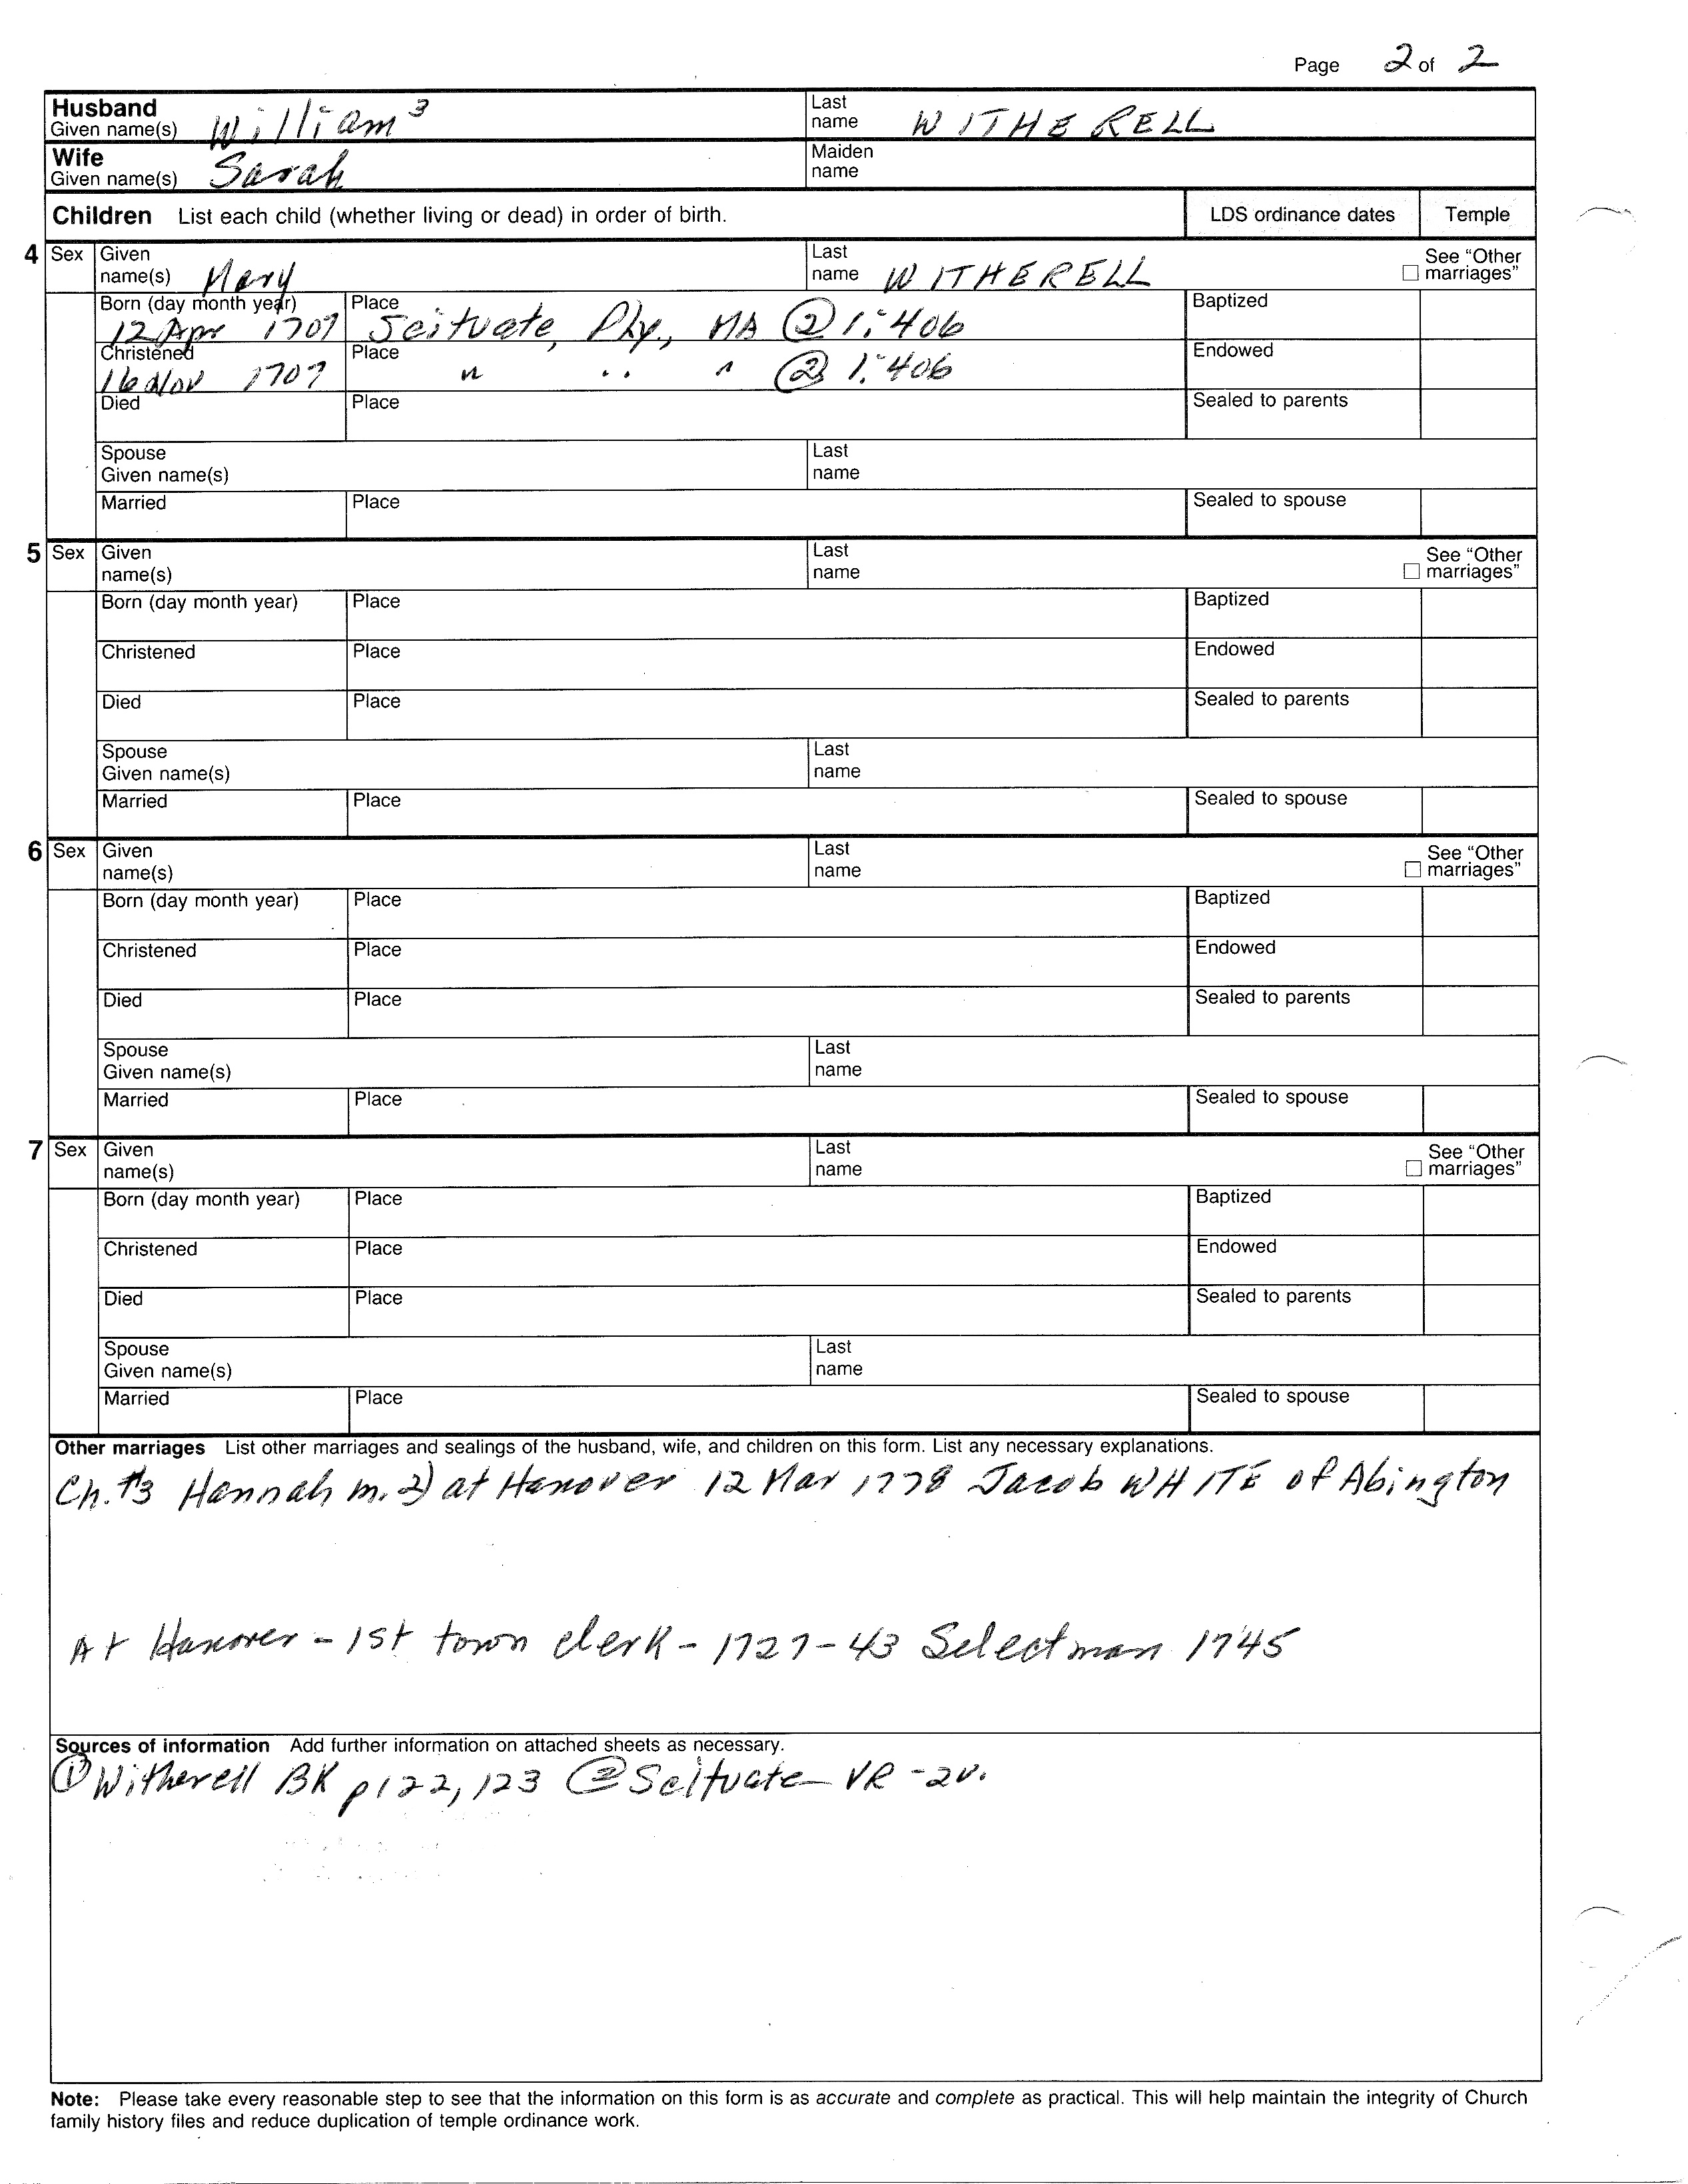 Page 2 of 2
Husband Given name(s) William³ Last name WITHERELL
Wife Given name(s) Sarah Maiden name
Children List each child (whether living or dead) in order of birth. LDS ordinance dates Temple
4 Sex Given name(s) Mary Last name WITHERELL See "Other marriages"
Born (day month year) 12 Apr 1707 Place Scituate, Ply., MA ② 1:406 Baptized
Christened 16 Nov 1707 Place " " " ② 1:406 Endowed
Died Place Sealed to parents
Spouse Given name(s) Last name
Married Place Sealed to spouse
5 Sex Given name(s) Last name See "Other marriages"
Born (day month year) Place Baptized
Christened Place Endowed
Died Place Sealed to parents
Spouse Given name(s) Last name
Married Place Sealed to spouse
6 Sex Given name(s) Last name See "Other marriages"
Born (day month year) Place Baptized
Christened Place Endowed
Died Place Sealed to parents
Spouse Given name(s) Last name
Married Place Sealed to spouse
7 Sex Given name(s) Last name See "Other marriages"
Born (day month year) Place Baptized
Christened Place Endowed
Died Place Sealed to parents
Spouse Given name(s) Last name
Married Place Sealed to spouse
Other marriages List other marriages and sealings of the husband, wife, and children on this form. List any necessary explanations.
Ch. #3 Hannah m. 2) at Hanover 12 Mar 1778 Jacob WHITE of Abington
At Hanover - 1st town clerk - 1727-43 Selectman 1745
Sources of information Add further information on attached sheets as necessary.
① Witherell BK p122, 123 ② Scituate VR - 2v.
Note: Please take every reasonable step to see that the information on this form is as accurate and complete as practical. This will help maintain the integrity of Church
family history files and reduce duplication of temple ordinance work.